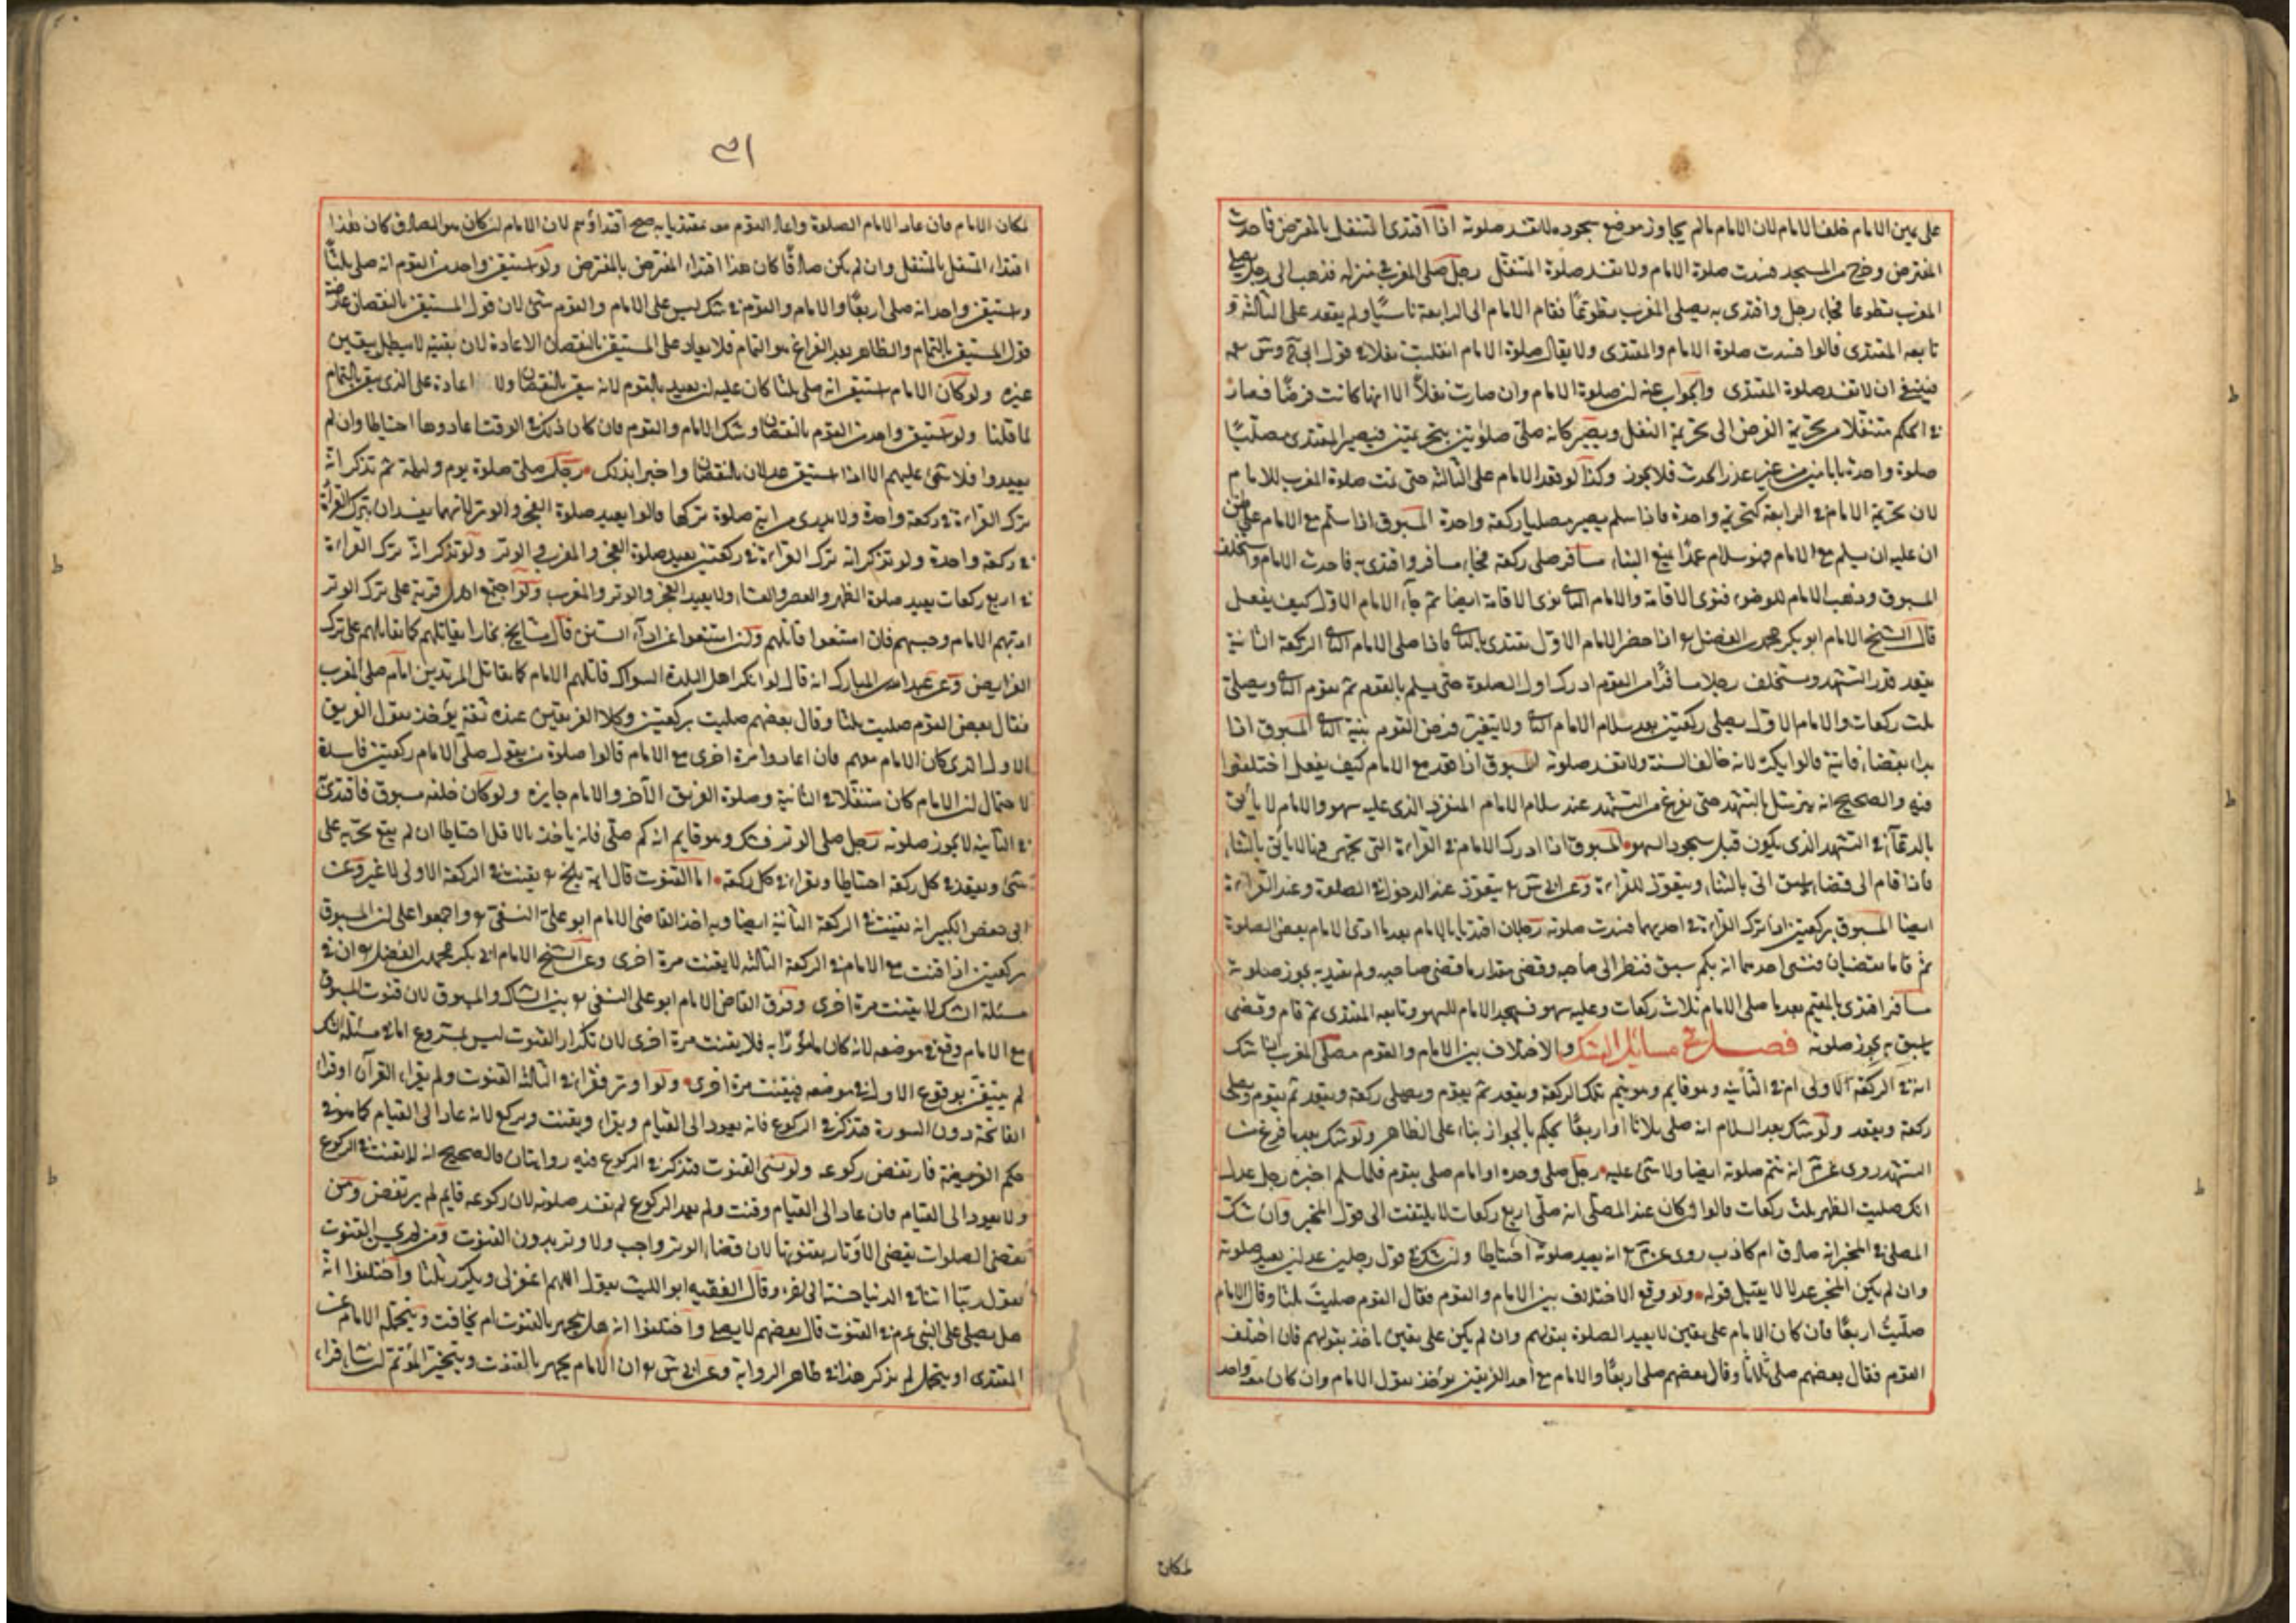 على يمين الامام خلف الامام لان الامام مالم يجاوز موضع سجوده لا تفسد صلوته اذا اقتدى المتنفل بالمفترض فاحدث
المفترض وخرج من المسجد فسدت صلوة الامام ولا تفسد صلوة المتنفل رجل صلى المغرب في منزله فذهب الى رجل يصلى
المغرب تطوعا فجاء رجل واقتدى به يصلى المغرب تطوعًا فقام الامام الى الرابعة ناسيًا ولم يقعد على الثالثة و
تابعه المقتدى قالوا فسدت صلوة الامام والمقتدى ولا يقال صلوة الامام انقلبت نفلا في قول
فينبغى ان لا تفسد صلوة المقتدى والجواب عنه ان صلوة الامام وان صارت نفلاً الا انها كانت فرضًا فصار
في الحكم متنقلا من تحريمة الفرض الى تحريمة النفل ويصير كانه صلى صلوتين بتحريمتين فيصير المقتدى مصليًا
صلوة واحدة بامامين من غير عذر الحدث فلا يجوز وكذا لو قعد الامام على الثالثة حتى تمت صلوة المغرب للامام
لان تحريمة الامام في الرابعة كتحريمة واحدة فاذا سلم يصير مصليا ركعة واحدة المسبوق اذا سلم مع الامام على ظن
ان عليه ان يسلم مع الامام فهو سلام عمدًا يمنع البناء مسافر صلى ركعة فجاء مسافر واقتدى به فاحدث الامام واستخلف
المسبوق وذهب الامام للوضوء فنوى الاقامة والامام الثانى نوى الاقامة ايضا ثم جاء الامام الاول كيف يفعل
قال الشيخ الامام ابو بكر محمد بن الفضل اذا حضر الامام الاول يقتدى بالثانى فاذا صلى الامام الثانى الركعة الثانية
يقعد قدر التشهد ويستخلف رجلا مسافرًا من القوم ادرك اول الصلوة حتى يسلم بالقوم ثم يقوم الثانى ويصلى
ثلث ركعات والامام الاول يصلى ركعتين بعد سلام الامام الثانى ولا يتغير فرض القوم بنية الثانى المسبوق اذا
بداء بقضاء فاتته قالوا يكره لانه خالف السنة ولا تفسد صلوته المسبوق اذا قعد مع الامام كيف يفعل اختلفوا
فيه والصحيح انه يترسل بالتشهد حتى يفرغ من التشهد عند سلام الامام المنفرد الذى عليه سهو والامام لا يأتى
بالدعاء في التشهد الذى يكون قبل سجود السهو المسبوق اذا ادرك الامام في القراءة التى يجهر فيها لا يأتى بالثناء
فاذا قام الى قضاء ما سبق اتى بالثناء ويتعوذ للقراءة وعن ابى يتعوذ عند الدخول في الصلوة وعند القراءة
ايضا المسبوق بركعتين اذا ترك القراءة في احديهما فسدت صلوته رجلان اقتديا بالامام بعد ما ادى الامام بعض الصلوة
ثم قاما يقضيان فنسى احدهما انه بكم سبق فنظر الى صاحبه وقضى مقدار ما قضى صاحبه ولم يقتد به يجوز صلوته
مسافر اقتدى بالمقيم بعد ما صلى الامام ثلاث ركعات وعليه سهو فسجد الامام للسهو وتابعه المقتدى ثم قام وقضى
ما سبق به يجوز صلوته فصل في مسائل الشك والاختلاف بين الامام والقوم مصلى المغرب اذا شك
انه في الركعة الاولى ام في الثانية وهو قايم يتم تلك الركعة ويقعد ثم يقوم ويصلى ركعة ويقعد ثم يقوم ويصلى
ركعة ويقعد ولو شك بعد السلام انه صلى ثلاثا او اربعًا يحكم بالجواز بناء على الظاهر ولو شك بعد ما فرغ من
التشهد روى انه تتم صلوته ايضا ولا شئ عليه رجل صلى وحده او امام صلى بقوم فلما سلم اخبره رجل عدل
انك صليت الظهر ثلث ركعات قالوا ان كان عند المصلى انه صلى اربع ركعات لا يلتفت الى قول المخبر وان شك
المصلى في المخبر انه صادق ام كاذب روى انه يعيد صلوته احتياطا وان شك في قول رجلين عدلين يعيد صلوته
وان لم يكن المخبر عدلا لا يقبل قوله ولو وقع الاختلاف بين الامام والقوم فقال القوم صليت ثلثا وقال الامام
صليت اربعًا فان كان الامام على يقين لا يعيد الصلوة بقولهم وان لم يكن على يقين ياخذ بقولهم فان اختلف
القوم فقال بعضهم صلى ثلاثًا وقال بعضهم صلى اربعًا والامام مع احد الفريقين يؤخذ بقول الامام وان كان معه واحد
لمكان
لمكان الامام فان عاد الامام الصلوة واعاد القوم معه مقتديا به صح اقتداؤهم لان الامام ان كان هو الصادق كان هذا
اقتداء المتنفل بالمتنفل وان لم يكن صادقًا كان هذا اقتداء المفترض بالمفترض ولو استيقن واحد من القوم انه صلى ثلثًا
واستيقن واحد انه صلى اربعًا والامام والقوم في شك ليس على الامام والقوم شئ لان قول المستيقن بالنقصان عارضه
قول المستيقن بالتمام والظاهر بعد الفراغ هو التمام فلا يعاد على المستيقن بالنقصان الاعادة لان يقينه لا يبطل بيقين
غيره ولو كان الامام استيقن انه صلى ثلثا كان عليه ان يعيد بالقوم لانه تيقن بالنقصان ولا اعادة على الذى تيقن بالتمام
لما قلنا ولو استيقن واحد من القوم بالنقصان وشك الامام والقوم فان كان ذلك في الوقت اعادوها احتياطا وان لم
يعيدوا فلا شئ عليهم الا اذا استيقن عدلان بالنقصان واخبرا بذلك رجل صلى صلوة يوم وليلة ثم تذكر انه
ترك القراءة في ركعة واحدة ولا يدرى من اية صلوة تركها قالوا يعيد صلوة الفجر والوتر لانهما يفسدان بترك القراءة
في ركعة واحدة ولو تذكر انه ترك القراءة في ركعتين يعيد صلوة الفجر والمغرب والوتر ولو تذكر انه ترك القراءة
في اربع ركعات يعيد صلوة الظهر والعصر والعشاء ولا يعيد الفجر والوتر والمغرب ولو اجتمع اهل قرية على ترك الوتر
ادبهم الامام وحبسهم فان امتنعوا قاتلهم وان امتنعوا عن اداء السنن قال مشايخ بخارا يقاتلهم كما يقاتلهم على ترك
الفرايض وعن عبد الله بن المبارك انه قال لو انكر اهل البلدة السواك قاتلهم الامام كما يقاتل المرتدين امام صلى المغرب
فقال بعض القوم صليت ثلثا وقال بعضهم صليت ركعتين وكلا الفريقين عنده ثقة يؤخذ بقول الفريق
الاول الذى كان الامام معهم فان اعادوا مرة اخرى مع الامام قالوا صلوة من يقول صلى الامام ركعتين فاسدة
لاحتمال ان الامام كان متنفلا في الثانية وصلوة الفريق الآخر والامام جايزة ولو كان خلفه مسبوق فاقتدى
في الثانية لا يجوز صلوته رجل صلى الوتر فشك وهو قايم انه كم صلى فانه ياخذ بالاقل احتياطا ان لم يقع تحريه على
شئ ويقعد في كل ركعة احتياطا ويقرا في كل ركعة اما القنوت قال ائمة بلخ يقنت في الركعة الاولى لا غير وعن
ابى حفص الكبير انه يقنت في الركعة الثانية ايضا وبه اخذ القاضى الامام ابو على النسفى واجمعوا على ان المسبوق
بركعتين اذا قنت مع الامام في الركعة الثالثة لا يقنت مرة اخرى وعن الشيخ الامام ابى بكر محمد بن الفضل ان في
مسئلة الشك لا يقنت مرة اخرى وفرق القاضى الامام ابو على النسفى بين الشاك والمسبوق لان قنوت المسبوق
مع الامام وقع في موضعه لانه كان مامورًا به فلا يقنت مرة اخرى لان تكرار القنوت ليس بمشروع اما في مسئلة الشك
لم يتيقن بوقوع الاول في موضعه فيقنت مرة اخرى ولو اوتر فقرا في الثالثة القنوت ولم يقراء القرآن او قراء
الفاتحة دون السورة فتذكر في الركوع فانه يعود الى القيام ويقراء ويقنت ويركع لانه عاد الى القيام كما هو في
حكم الفريضة فارتفض ركوعه ولو نسى القنوت فتذكر في الركوع فيه روايتان والصحيح انه لا يقنت في الركوع
ولا يعود الى القيام فان عاد الى القيام وقنت ولم يعد الركوع لم تفسد صلوته لان ركوعه قايم لم يرتفض ومن
يقضى الصلوات يقضى الاوتار بقنوتها لان قضاء الوتر واجب ولا وتر بدون القنوت ومن لم يحسن القنوت
يقول ربنا آتنا في الدنيا حسنة الى آخره وقال الفقيه ابو الليث يقول اللهم اغفر لى ويكرر ثلثا واختلفوا انه
هل يصلى على النبى في القنوت قال بعضهم لا يصلى واختلفوا انه هل يجهر بالقنوت ام يخافت ويتحمله الامام عن
المقتدى او يتحمل لم يذكر هذا في ظاهر الرواية وعن ابى ان الامام يجهر بالقنوت ويتخير المؤتم ان شاء قراء